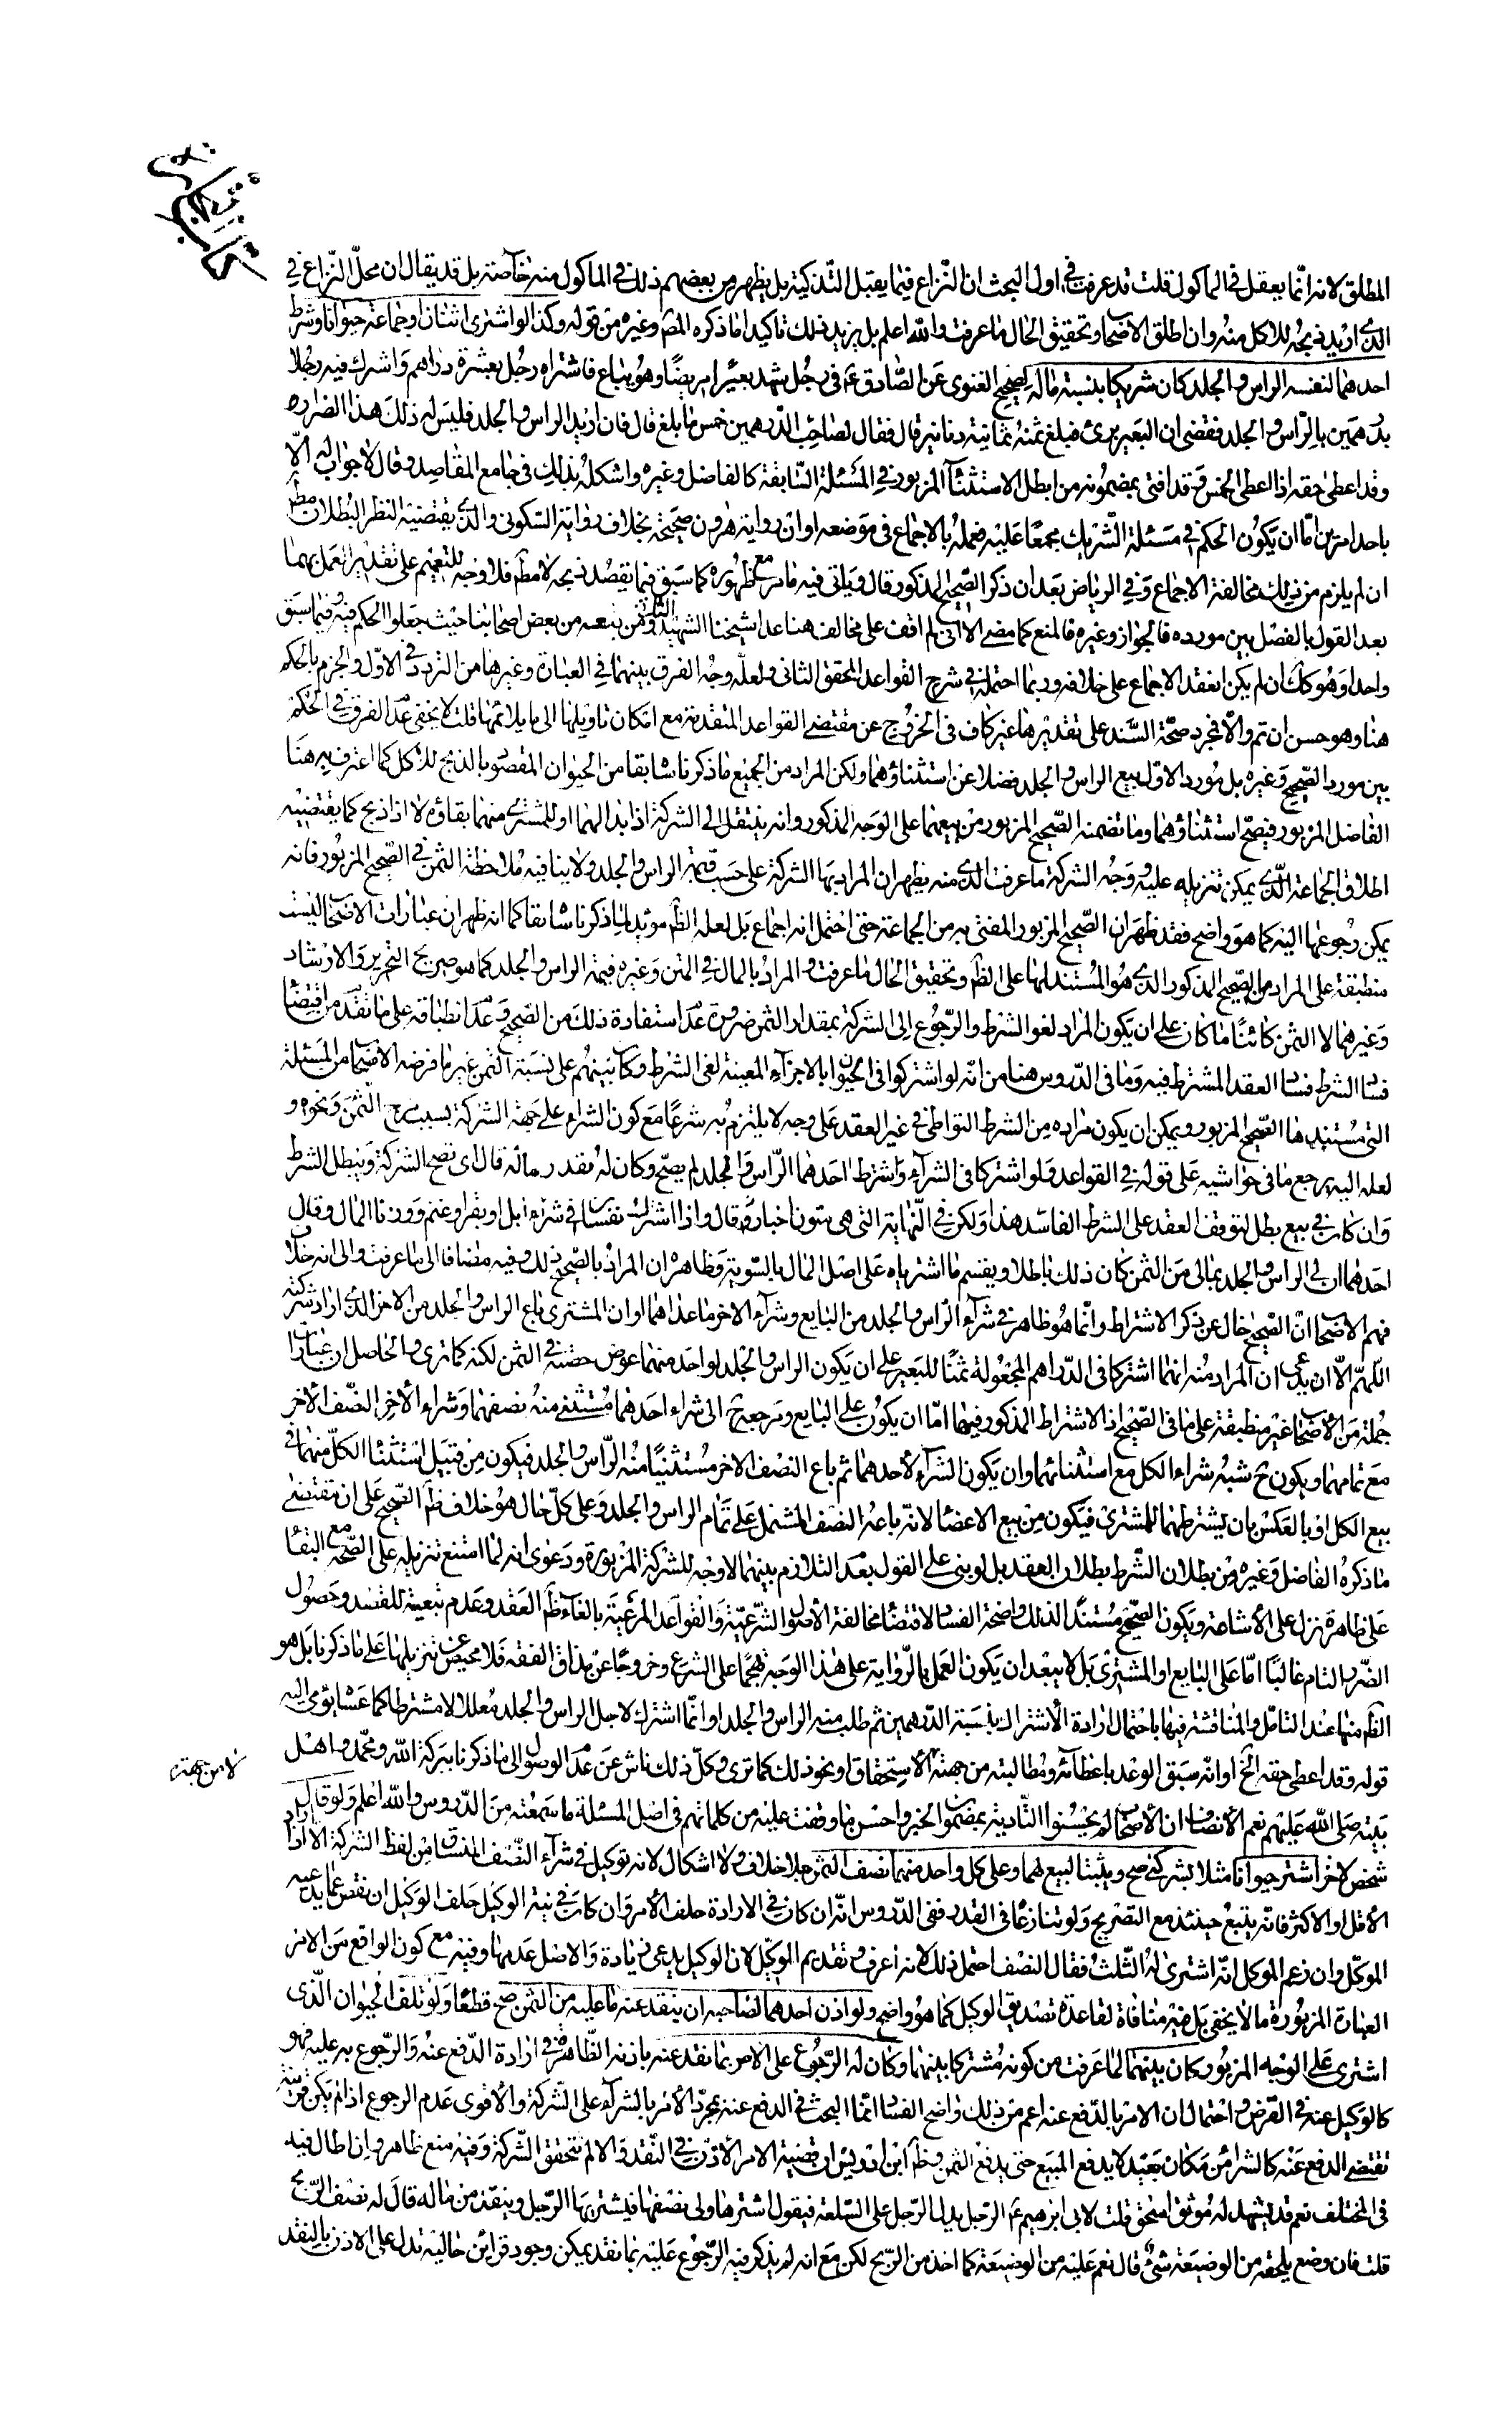 كتاب التجارة
المطلق لانه انّما يعقل في المأكول قلت قد عرفت في اول البحث ان النّزاع فيما يقبل التّذكية بل يظهر من بعضهم ذلك في المأكول منه خاصّة بل قد يقال ان محلّ النّزاع في
الذى اريد ذبحه للاكل منه وان اطلق الاصحا وتحقيق الحال ما عرفت والله اعلم بل يزيد ذلك تاكيدا ما ذكره المص وغيره من قوله وكذا لو اشترى اثنان او جماعة حيوانا وشرط
احدهما لنفسه الراس والجلد كان شريكا بنسبة ماله لصحيح الغنوى عن الصّادق ع في رجل شهد بعيرا مريضًا وهو يباع فاشتراه رجل بعشرة دراهم واشرك فيه رجلا
بدرهمين بالرّاس والجلد فقضى ان البعير برئ فبلغ ثمنه ثمانية دنانير قال فقال لصاحب الدّرهمين خمس ما بلغ قال فان اريد الراس والجلد فليس له ذلك هذا الضرار
وقد اعطى حقه اذا اعطى الخمس وقد افتى بمضمونه من ابطل الاستثناء المزبور في المسئلة السّابقة كالفاضل وغيره واشكله بذلك في جامع المقاصد وقال لا جواب له الا
باحد امرين امّا ان يكون الحكم في مسئلة الشّريك مجمعًا عليه فعمله بالاجماع في موضعه او ان رواية هرون صحيحة بخلاف رواية السّكونى والذى يقتضيه النظر البطلان مطم
ان لم يلزم من ذلك مخالفة الاجماع وفي الرياض بعد ان ذكر الصّحيح المذكور قال وياتى فيه ما مر مع ظهوره كما سبق فيما يقصد ذبحه لا مطم فلا وجه للتعميم على تقدير العمل بهما
بعد القول بالفصل بين مورده فالجواز وغيره فالمنع كما مضى الا انى لم اقف على مخالف هنا عدا شيخنا الشهيد الثانى ومن تبعه من بعض اصحابنا حيث جعلوا الحكم فيه وفيما سبق
واحدا وهو كك ان لم يكن انعقد الاجماع على خلافه وربما احتمله في شرح القواعد المحقق الثانى ولعلّه وجه الفرق بينهما في العبارة وغيرها من التردد في الاوّل والجزم بالحكم
هنا وهو حسن ان تم والّا فمجرد صحّة السّند على تقديرها غير كاف في الخروج عن مقتضى القواعد المتقدمة مع امكان تاويلها الى ما يلائمها قلت لا يخفى عدم الفرق في الحكم
بين مورد الصّحيح وغيره بل مورد الاوّل بيع الراس والجلد فضلا عن استثناؤهما ولكن المراد من الجميع ما ذكرنا سابقا من الحيوان المقصود بالذبح للاكل كما اعترف به هنا
الفاضل المزبور فيصحّ استثناؤهما وما تضمنه الصّحيح المزبور من بيعهما على الوجه المذكور وانه ينتقل الى الشركة اذا بدا لهما او للمشترى منهما بقاؤه لا اذا ذبح كما يقتضيه
اطلاق الجماعة الّذى يمكن تنزيله عليه ووجه الشركة ما عرفت الذى منه يظهر ان المراد بها الشركة على حسب قيمة الراس والجلد ولا ينافيه ملاحظة الثمن في الصّحيح المزبور فانه
يمكن رجوعها اليه كما هو واضح فقد ظهر ان الصّحيح المزبور المفتى به من الجماعة حتى احتمل انه اجماع بل لعله الظم مؤيد لما ذكرنا سابقا كما انه ظهر ان عبارات الاصحاب ليست
منطبقة على المراد من الصّحيح المذكور الذى هو المستند لها على الظم وتحقيق الحال ما عرفت والمراد بالمال في المتن وغيره قيمة الراس والجلد كما هو صريح التحرير والارشاد
وغيرهما لا الثمن كائنًا ما كان على ان يكون المراد لغو الشرط والرّجوع الى الشركة بمقدار الثمن ضرورة عدم استفادة ذلك من الصّحيح وعدم انطباقه على ما تقدم من اقتضاء
فساد الشرط فساد العقد المشترط فيه وما في الدّروس هنا من انّه لو اشتركوا في الحيوان بالاجزاء المعينة لغى الشرط وكان بينهم على نسبة الثمن غير ما فرضه الاصحاب من المسئلة
التى مستندها الصّحيح المزبور ويمكن ان يكون مراده من الشرط التواطى في غير العقد على وجه لا يلتزم به شرعًا مع كون الشراء على جهة الشركة بسبب مزج الثمن ونحوه و
لعله اليه يرجع ما في حواشيه على قوله في القواعد ولو اشتركا في الشراء واشترط احدهما الرّاس والجلد لم يصحّ وكان له بقدر ماله قال اى تصح الشركة ويبطل الشرط
وان كان في بيع بطل لتوقف العقد على الشرط الفاسد هذا ولكن في النّهاية التى هى متون اخبار قال واذا اشترك نفسان في شراء ابل او بقر او غنم ووزنا المال وقال
احدهما ان لى الراس والجلد بمالى من الثمن كان ذلك باطلا ويقسم ما اشترياه على اصل المال بالسّوية وظاهره ان المراد بالصّحيح ذلك وفيه مضافا الى ما عرفت والى انه خلاف
فهم الاصحاب انّ الصّحيح خال عن ذكر الاشتراط وانّما هو ظاهر في شراء الرّاس والجلد من البايع وشراء الاخر ما عداهما او ان المشترى باع الراس والجلد من الاخر الذى اراد شركته
اللهمّ الّا ان يدعى ان المراد منه انهما اشتركا في الدّراهم المجعولة ثمنًا للبعير على ان يكون الراس والجلد لواحد منهما عوض حصّته في الثمن لكنه كما ترى والحاصل ان عبارات
جملة من الاصحاب غير منطبقة على ما في الصّحيح اذ الاشتراط المذكور فيها امّا ان يكون على البايع ومرجعه ح الى شراء احدهما مستثنى منه نصفهما وشراء الاخر النّصف الاخر
مع تمامهما ويكون ح شبه شراء الكل مع استثنائهما وان يكون الشراء لاحدهما ثم باع النصف الاخر مستثنيًا منه الرّاس والجلد فيكون من قبيل استثناء الكلّ منهما في
بيع الكل او بالعكس بان يشترطهما للمشترى فيكون من بيع الاعضاء لانّه باعه النصف المشتمل على تمام الراس والجلد وعلى كلّ حال هو خلاف ظم الصّحيح على ان مقتضى
ما ذكره الفاضل وغيره من بطلان الشّرط بطلان العقد بل لو بنى على القول بعدم التلازم بينهما لا وجه للشركة المزبورة ودعوى انه لما امتنع تنزيله على الصّحة مع البقاء
على ظاهره نزل على الاشاعة ويكون الصّحيح مستندًا لذلك واضحة الفساد لاقتضاء مخالفة الاصول الشّرعيّة والقواعد المرعيّة بالغاء ظم العقد وعدم تبعية للقصد وحصول
الضّرر التام غالبًا امّا على البايع او المشترى بل لا يبعد ان يكون العمل بالرّواية على هذا الوجه هجمًا على الشرع وخروجًا عن مذاق الفقه فلا محيص عن تنزيلها على ما ذكرنا بل هو
الظم منها عند التامل والمناقشة فيها باحتمال ارادة الاشتراك بنسبة الدّرهمين ثم طلب منه الراس والجلد او انّما اشترك لاجل الراس والجلد معللا لا مشترطا كما عساه يؤمى اليه
قوله وقد اعطى حقه الخ او انّه سبق الوعد باعطائه ومطالبته من جهته لا الاستحقاق ونحو ذلك كما ترى وكلّ ذلك ناش عن عدم الوصول الى ما ذكرنا ببركة الله ومحمّد واهل
لا من جهته
بيته صلى الله عليهم نعم الانصاف ان الاصحاب لم يحسنوا التّادية بمضمون الخبر واحسن ما وقفت عليه من كلماتهم في اصل المسئلة ما سمعته من الدّروس والله اعلم ولو قال
شخص لاخر اشتر حيوانا مثلا بشركتى صح ويثبت البيع لهما وعلى كل واحد منهما نصف الثمن بلا خلاف ولا اشكال لانه توكيل في شراء النّصف المنساق من لفظ الشركة الا اذا اراد
الاقل او الاكثر فانّه يتبع حينئذ مع التصريح ولو تنازعا في القدر ففى الدّروس انّه ان كان في الارادة حلف الأمر وان كان في نيّة الوكيل حلف الوكيل ان نقص عما يدعيه
الموكّل وان زعم الموكل انّه اشترى له الثّلث فقال النصف احتمل ذلك لانه اعرف وتقديم الموكّل لان الوكيل يدعى زيادة والاصل عدمها وفيه مع كون الواقع من الامر
العبارة المزبورة ما لا يخفى بل فيه منافاة لقاعدة تصديق الوكيل كما هو واضح ولو اذن احدهما لصاحبه ان ينقد عنه ما عليه من الثمن صح قطعًا ولو تلف الحيوان الّذى
اشترى على الوجه المزبور كان بينهما لما عرفت من كونه مشتركا بينهما وكان له الرّجوع على الامر بما نقد عنه باذنه الظّاهرة في ارادة الدّفع عنه والرّجوع به عليه فهو
كالوكيل عنه في القرض واحتمال ان الامر بالدّفع عنه اعم من ذلك واضح الفساد انّما البحث في الدفع عنه بمجرّد الامر بالشراء على الشّركة والاقوى عدم الرجوع اذا لم يكن قرينة
تقتضى الدفع عنه كالشراء من مكان بعيد لا يدفع المبيع حتى يدفع الثمن وظم ابن ادريس ان قضية الامر الاذن في النّقد والا لم تتحقق الشّركة وفيه منع ظاهر وان اطال فيه
في المختلف نعم قد يشهد له موثق اسحق قلت لابى ابرهيم ع الرّجل يدل الرّجل على السّلعة فيقول اشترها ولى نصفها فيشتريها الرّجل وينقد من ماله قال له نصف الرّبح
قلت فان وضع يلحقه من الوضيعة شئ قال نعم عليه من الوضيعة كما اخذ من الرّبح لكن مع انه لم يذكر فيه الرّجوع عليه بما نقد يمكن وجود قراين حالية تدل على الاذن بالنقد